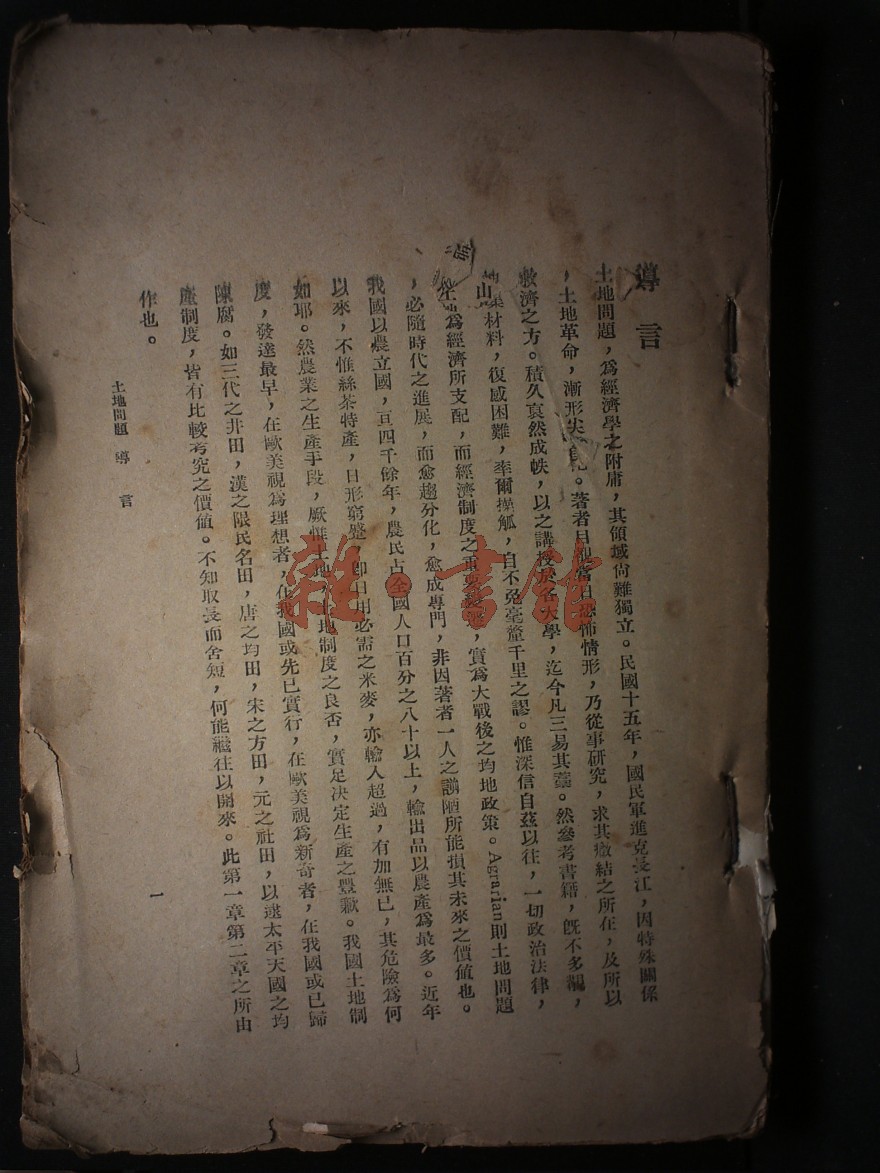 導言
土地問題，為經濟學之附庸，其領域尙難獨立。民國十五年，國民軍進克長江，因特殊關係
，土地革命，漸形尖。著者目視當日恐怖情形，乃從事研究，求其癥結之所在，及所以
救濟之方。積久裒然成帙，以之講授於各大學，迄今凡三易其藁。然參考書籍，旣不多覯，
材料，復感困難，率爾操觚，自不免毫釐千里之謬。惟深信自茲以往，一切政治法律，
為經濟所支配，而經濟制度之重要，實為大戰後之均地政策。Agrarian則土地問題
，必隨時代之進展，而愈趨分化，愈成專門，非因著者一人之譾陋所能損其未來之價値也。
我國以農立國，亘四千餘年，農民占全國人口百分之八十以上，輸出品以農產為最多。近年
以來，不惟絲茶特產，日形窮蹙，卽日用必需之米麥，亦輸入超過，有加無已，其危險為何
如耶。然農業之生產手段，厥惟土地，土地制度之良否，實足决定生產之豐歉。我國土地制
度，發達最早，在歐美視為理想者，在我國或先已實行，在歐美視為新奇者，在我國或已歸
陳腐。如三代之井田，漢之限民名田，唐之均田，宋之方田，元之社田，以逮太平天國之均
產制度，皆有比較考究之價値。不知取長而舍短，何能繼往以開來。此第一章第二章之所由
作也。
土地問題 導言
一
雜·書館